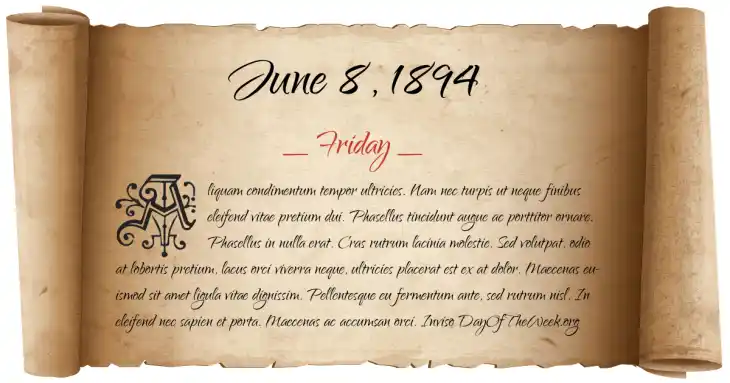 June 8, 1894
_ Friday _
Aliquam condimentum tempor ultricies. Nam nec turpis ut neque finibus
eleifend vitae pretium dui. Phasellus tincidunt augue ac porttitor ornare.
Phasellus in nulla erat. Cras rutrum lacinia molestie. Sed volutpat, odio
at lobortis pretium, lacus orci viverra neque, ultricies placerat est ex at dolor. Maecenas eu-
ismod sit amet ligula vitae dignissim. Pellentesque eu fermentum ante, sed rutrum nisl. In
eleifend nec sapien et porta. Maecenas ac accumsan orci. Inviso DayOfTheWeek.org